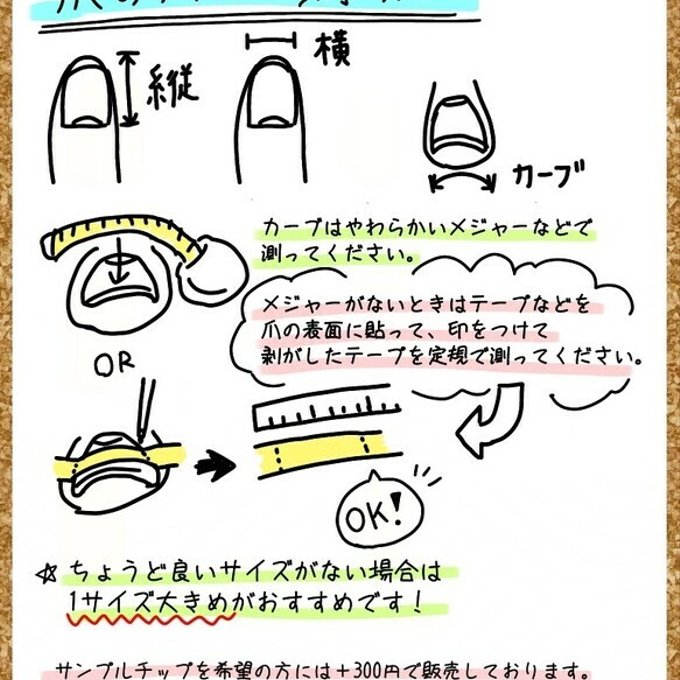 縦
横
カーブ
カーブはやわらかいメジャーなどで
測ってください。
メジャーがないときはテープなどを
爪の表面に貼って、印をつけて
剥がしたテープを定規で測ってください。
OR
OK!
☆ちょうど良いサイズがない場合は
1サイズ大きめがおすすめです!
サンプルチップを希望の方には+300円で販売しております。